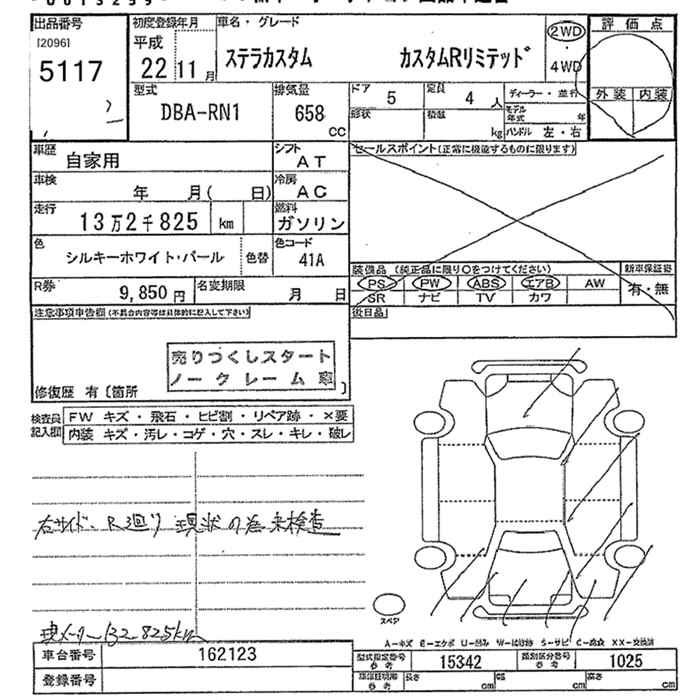 出品番号 初度登録年月 車名・グレード 2WD 評価点
[2096] 平成 ステラカスタム カスタムRリミテッド 4WD
5117 22 11 月 外装 内装
型式 DBA-RN1 排気量 658 CC ドア 5 定員 4 人 ディーラー・並行
形状 積載 kg モデル年式 年
ハンドル 左・右
車歴 自家用 シフト AT セールスポイント(正常に機能するものに限ります)
車検 年 月( 日) 冷房 AC
走行 13万2千825 km 燃料 ガソリン
色 シルキーホワイト・パール 色替 色コード 41A
装備品 (純正品に限り○をつけてください) 新車保証書
R券 9,850円 名変期限 月 日 PS PW ABS エアB AW 有・無
SR ナビ TV カワ
注意事項申告欄(不具合内容等は具体的に記入して下さい) 後日品
売りつくしスタート
ノークレーム
修復歴 有〔箇所 〕
検査員記入欄 FW キズ・飛石・ヒビ割・リペア跡・×要
内装 キズ・汚レ・コゲ・穴・スレ・キレ・破レ
右サイド、R廻り 現状の為未検査
スペア
現メーター132,825km
A-キズ E-エクボ U-凹み W-補修跡 S-サビ C-腐食 XX-交換済
車台番号 162123 型式指定番号 参考 15342 類別区分番号 参考 1025
登録番号 長さ cm 幅 cm 高さ cm